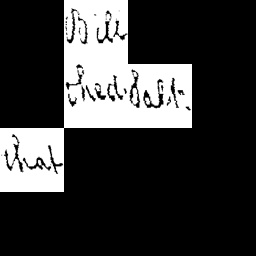 Bill
shed Salt.
that